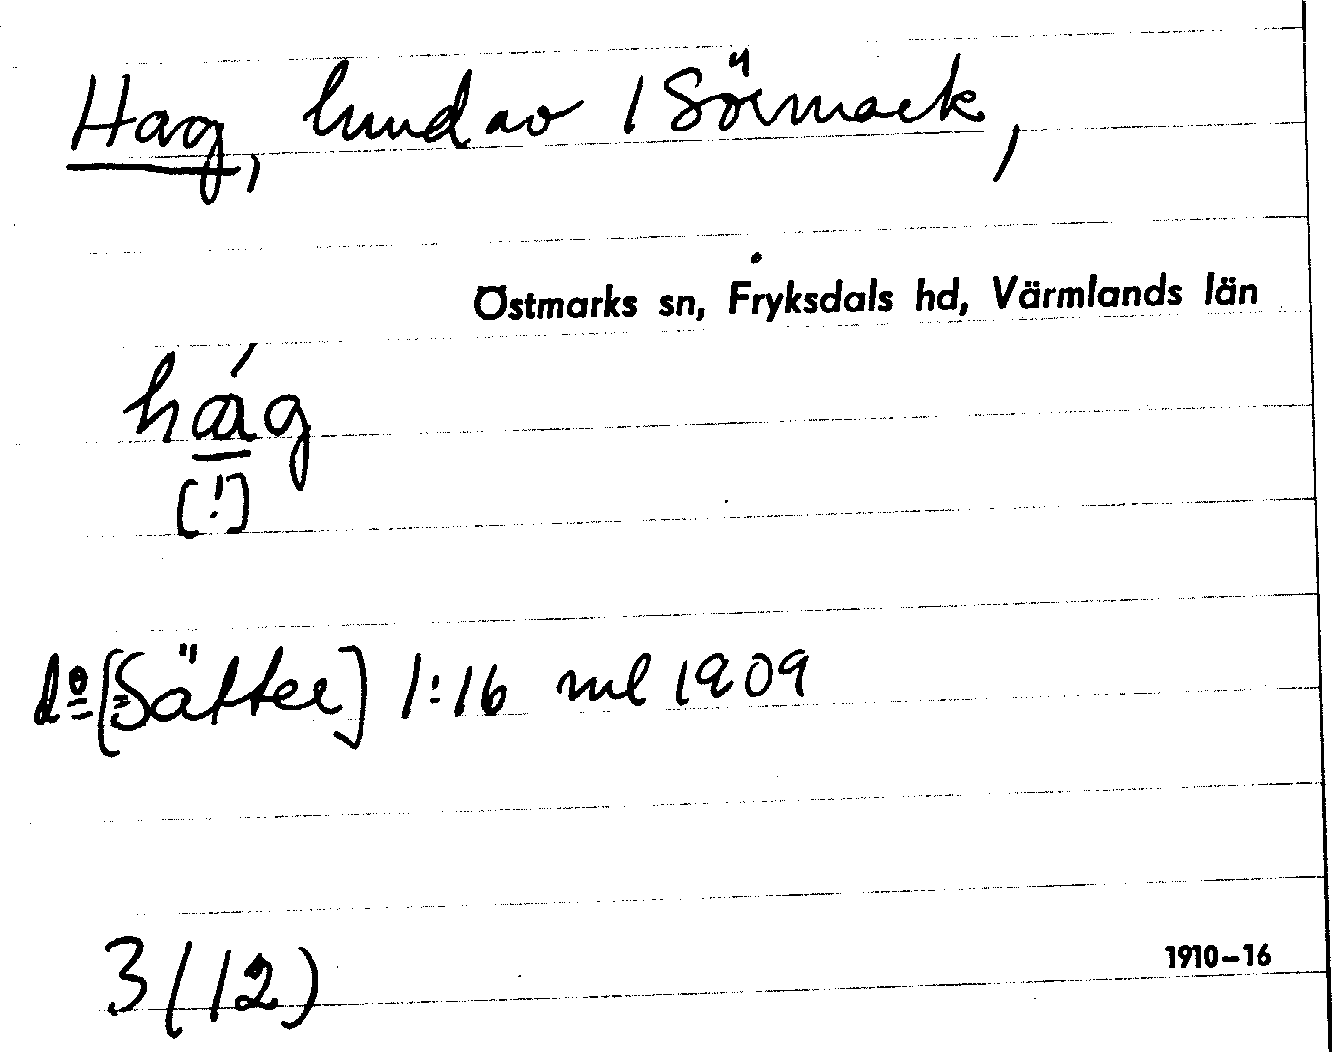 Hag, hmd av 1 Sörmark,
Östmarks sn, Fryksdals hd, Värmlands län
hág
[!]
do [= Sätter] 1:16 ml 1909
3 (12)
1910–16